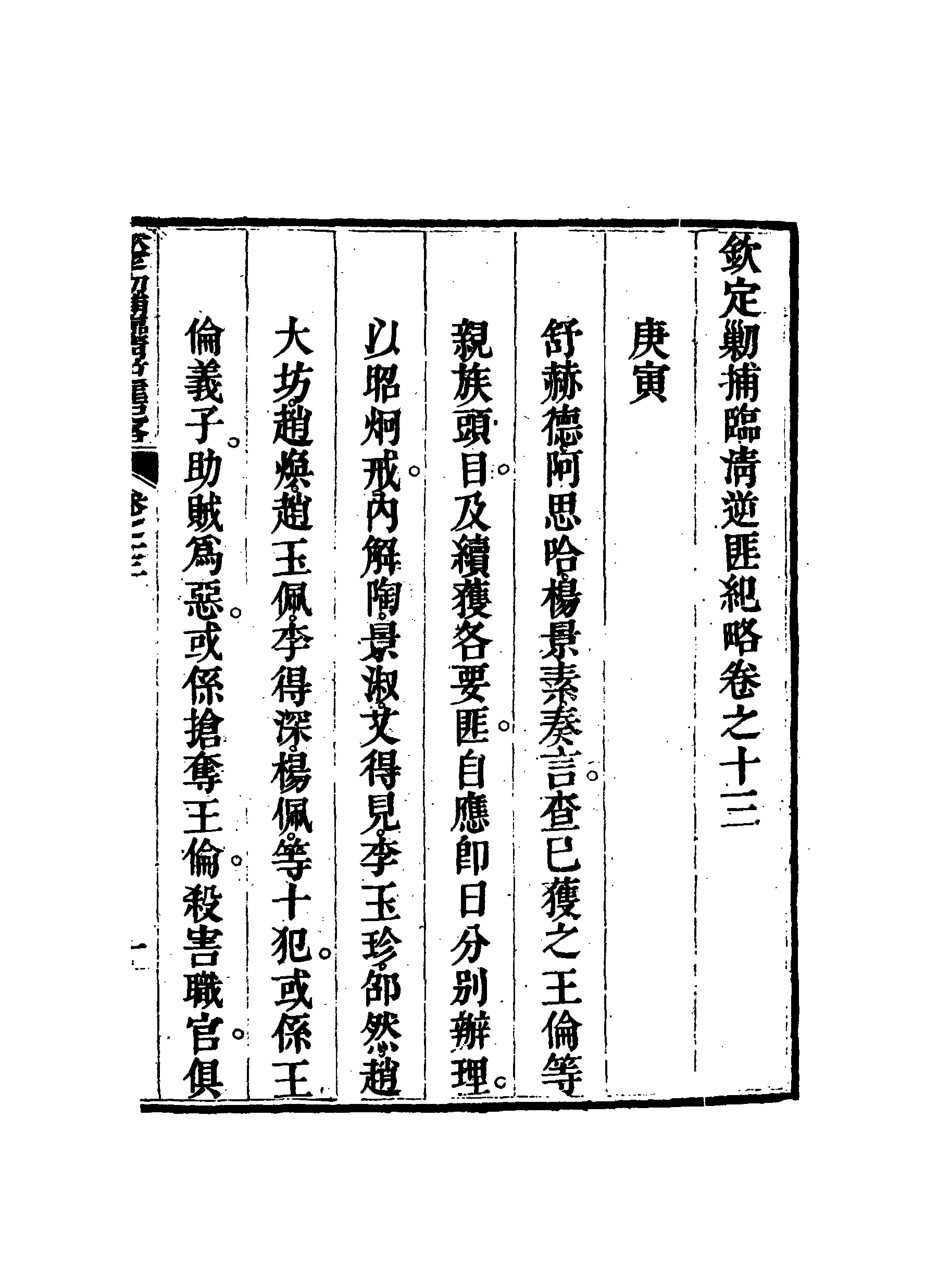 欽定勦捕臨清逆匪紀略卷之十三
庚寅
舒赫德阿思哈楊景素奏言。查已獲之王倫等
親族頭目。及續獲各要匪。自應卽日分別辦理。
以昭炯戒。內解陶景淑、艾得見、李玉珍、邵然、趙
大坊、趙煥、趙玉佩、李得深、楊佩、等十犯。或係王
倫義子。助賊爲惡。或係搶奪王倫。殺害職官。俱